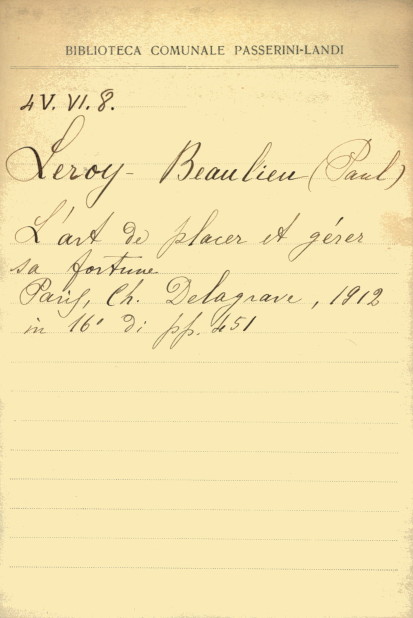 BIBLIOTECA COMUNALE PASSERINI-LANDI
4 V. VI. 8.
Leroy-Beaulieu (Paul)
L'art de placer et gérer
sa fortune
Paris, Ch. Delagrave, 1912
in 16° di pp. 451